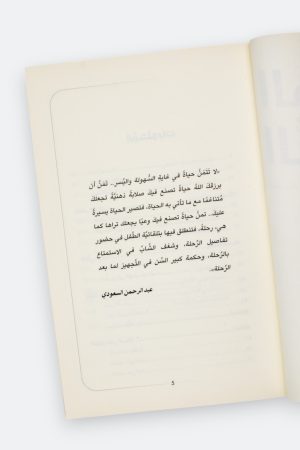 «لا تَتَمَنَّ حياةً في غايةِ السُّهولة واليُسر.. تَمَنَّ أن
يرزقكَ اللهُ حياةً تصنع فيكَ صلابةً ذهنيَّةً تجعلكَ
مُتناغمًا مع ما تأتي به الحياة، فتصير الحياة يسيرةً
عليك.. تمنَّ حياةً تصنع فيكَ وعيًا يجعلك تراها كما
هي: رحلةً، فتنطلق فيها بتلقائيَّة الطِّفل في حضور
تفاصيل الرِّحلة، وشغف الشَّابِّ في الاستمتاع
بالرِّحلة، وحكمة كبير السِّن في التَّجهيز لما بعد
الرِّحلة».
عبد الرحمن السعودي
5